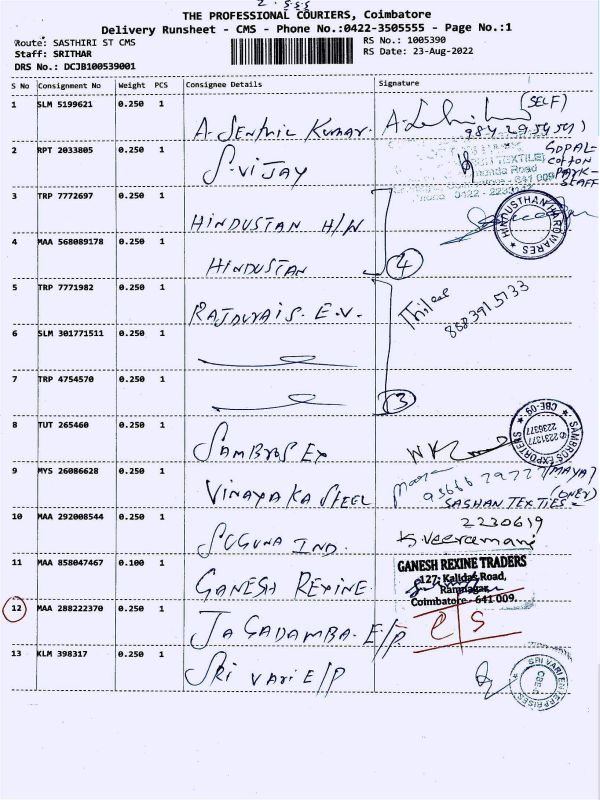 THE PROFESSIONAL COURIERS, Coimbatore
Delivery Runsheet - CMS - Phone No.:0422-3505555 - Page No.:1
Route: SASTHIRI ST CMS
RS No.: 1005390
Staff: SRITHAR
RS Date: 23-Aug-2022
DRS No.: DCJB100539001
S No Consignment No Weight PCS Consignee Details Signature
1 SLM 5199621 0.250 1 A. SENTHIL KUMAR. (SELF)
2 RPT 2033805 0.250 1 S. VIJAY GOPAL Cotton PARK- STAFF
3 TRP 7772697 0.250 1 HINDUSTAN H/W HINDUSTHAN HARDWARES
4 MAA 568089178 0.250 1 HINDUSTAN 4
5 TRP 7771982 0.250 1 RAJDURAIS. E.V.
6 SLM 301771511 0.250 1
7 TRP 4754570 0.250 1 3
8 TUT 265460 0.250 1 SAMBROS EX SAMBROS EXPORTERS CBE-09 2231377 2236377
9 MYS 26086628 0.250 1 VINAYAKA STEEL (MAYA)
SASHAN TEXTIES
10 MAA 292008544 0.250 1 SUGUNA IND. 2230619
K. Veeramani
11 MAA 858047467 0.100 1 GANESH REXINE GANESH REXINE TRADERS
127, Kalidas Road,
Ramnagar,
Coimbatore - 641 009.
12 MAA 288222370 0.250 1 JAGADAMBA. E/P. C/S
13 KLM 398317 0.250 1 SRI VARI E/P SRI VARI ENTERPRISES